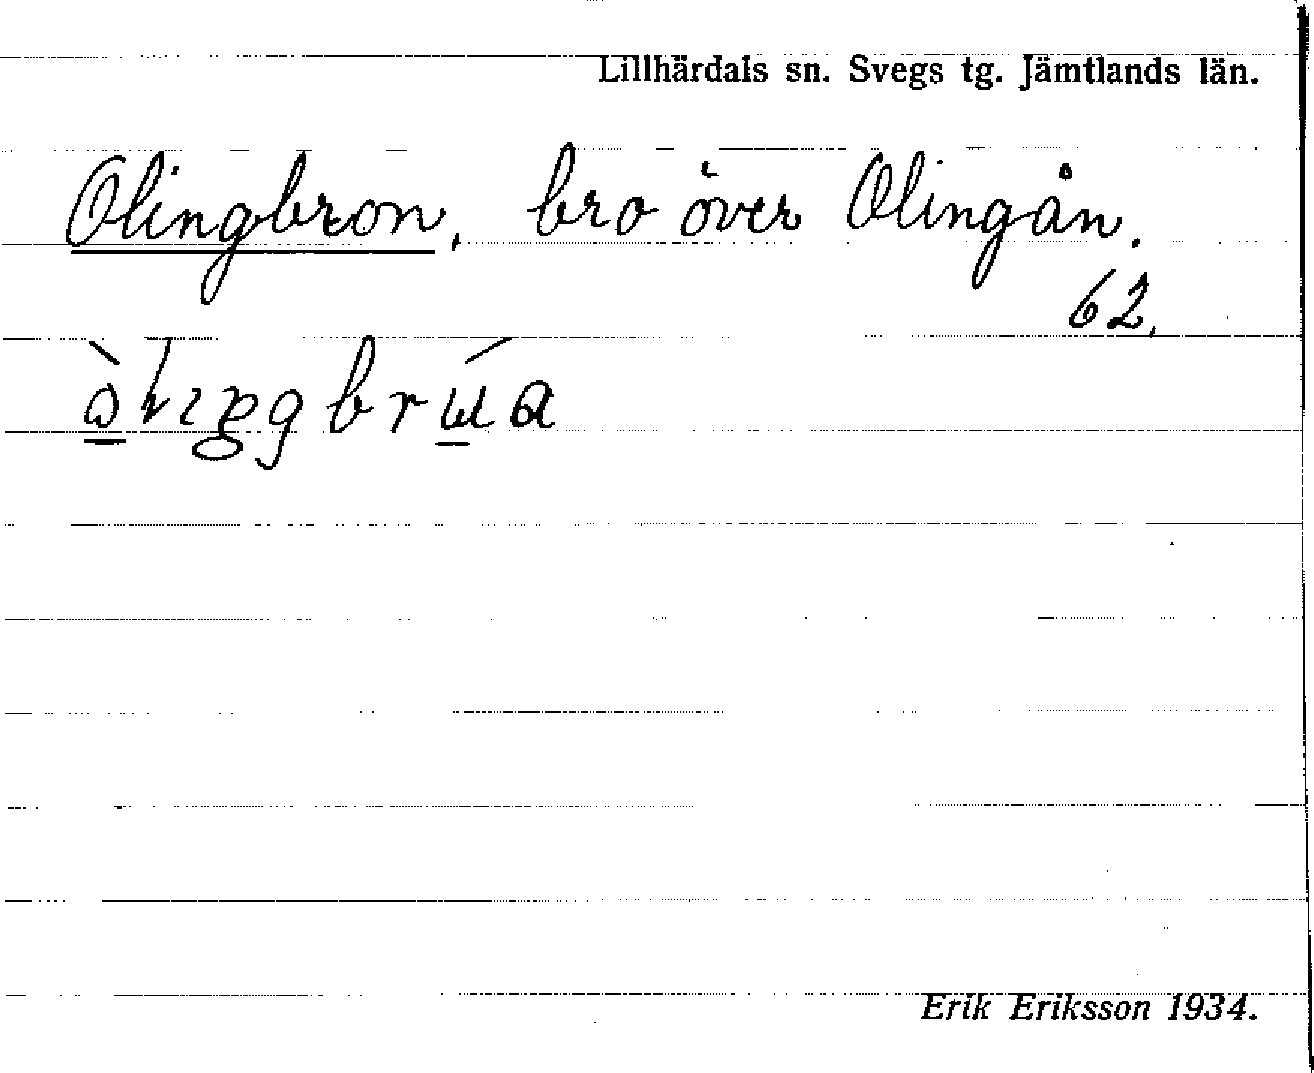 Lillhärdals sn. Svegs tg. Jämtlands län.
Olingbron, bro över Olingån.
62.
Erik Eriksson 1934.